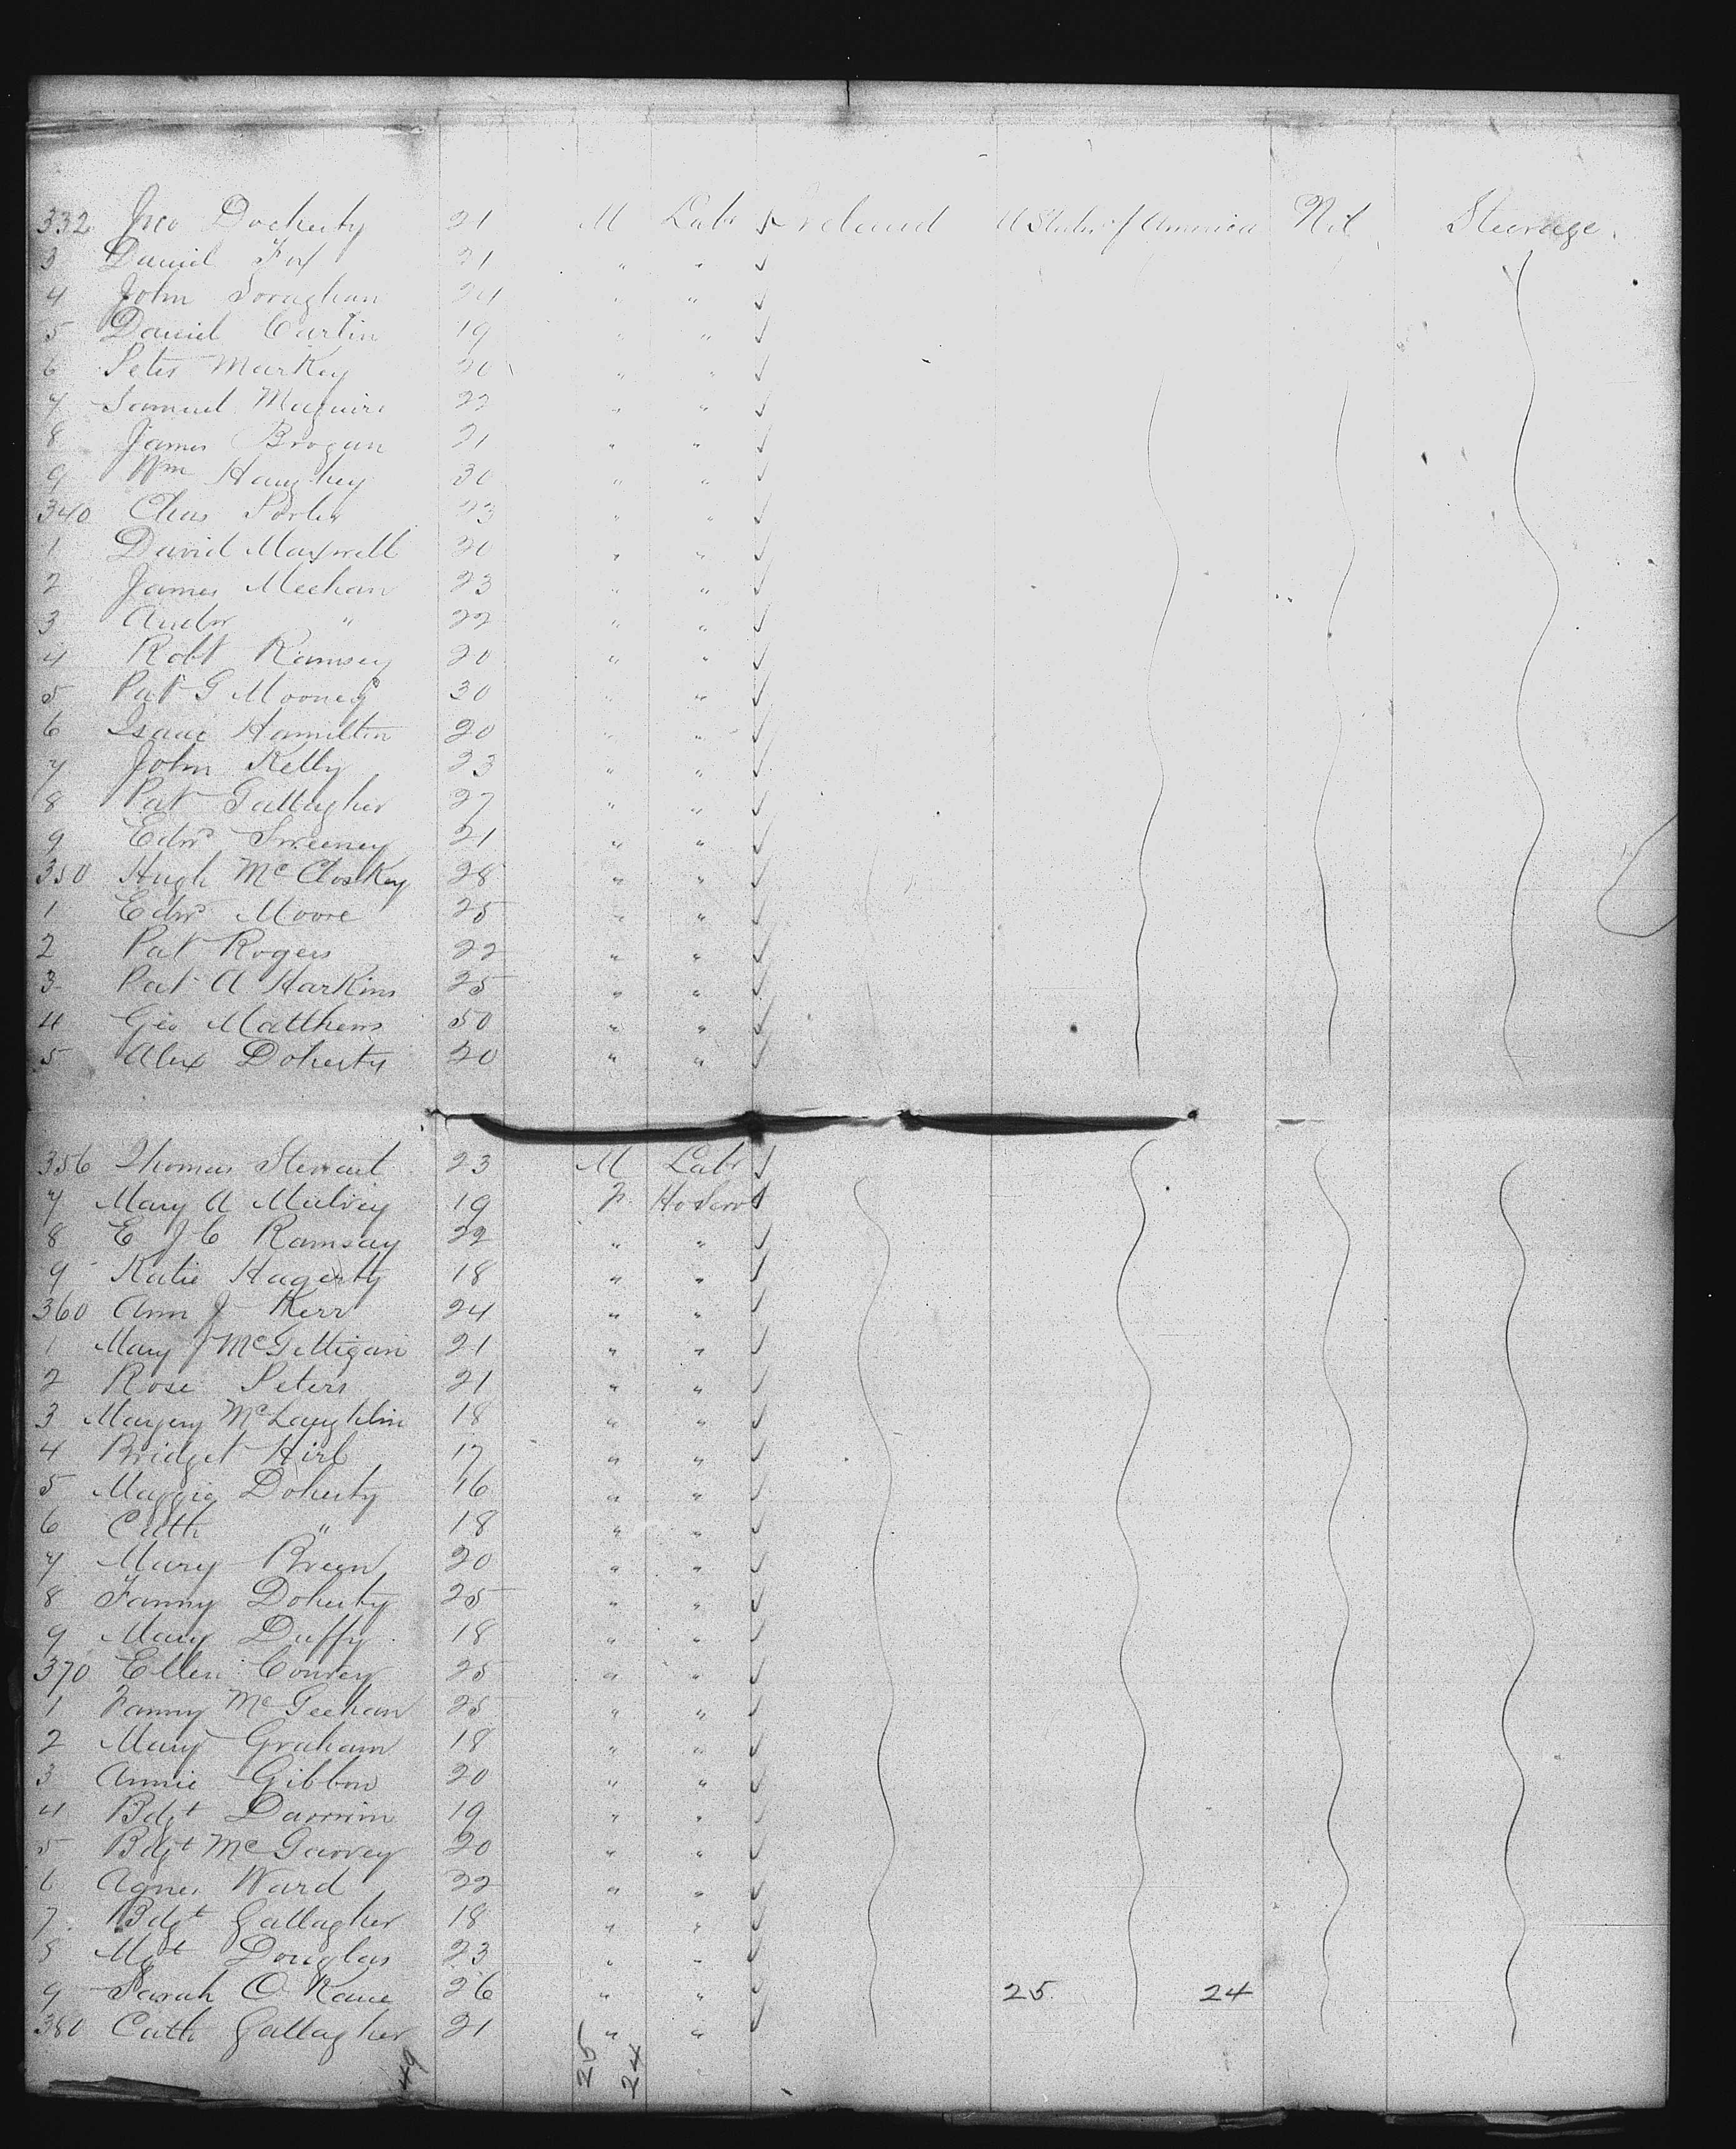 332 Jno Docherty 21 M Labr ✓ Ireland U States of America Nil Steerage
3 Daniel Fox 21 " " ✓
4 John 24 " " ✓
5 Daniel Curtin 19 " " ✓
6 Peter Markey 20 " " ✓
7 Samuel Maguire 22 " " ✓
8 James Brogan 21 " " ✓
9 Wm Haughey 30 " " ✓
340 Chas Porter 23 " " ✓
1 David Maxwell 20 " " ✓
2 James Meehan 23 " " ✓
3 Andw " 22 " " ✓
4 Robt Ramsey 20 " " ✓
5 Pat G Mooney 30 " " ✓
6 Isaac Hamilton 20 " " ✓
7 John Kelly 23 " " ✓
8 Pat Gallagher 27 " " ✓
9 Edwd Sweeney 21 " " ✓
350 Hugh McCloskey 28 " " ✓
1 Edwd Moore 25 " " ✓
2 Pat Rogers 22 " " ✓
3 Pat A Harkins 25 " " ✓
4 Geo Matthews 50 " " ✓
5 Alex Doherty 20 " " ✓
356 Thomas Stewart 23 M Labr ✓
7 Mary A Mulvey 19 F Ho Serv ✓
8 E J C Ramsay 22 " " ✓
9 Katie Hagerty 18 " " ✓
360 Ann J Kerr 24 " " ✓
1 Mary J McGettigan 21 " " ✓
2 Rose Peters 21 " " ✓
3 Margery McLaughlin 18 " " ✓
4 Bridget 17 " " ✓
5 Maggie Doherty 16 " " ✓
6 Cath " 18 " " ✓
7 Mary Breen 20 " " ✓
8 Fanny Doherty 25 " " ✓
9 Mary Duffy 18 " " ✓
370 Ellen Convey 25 " " ✓
1 Fanny McGeehan 25 " " ✓
2 Mary Graham 18 " " ✓
3 Annie Gibbon 20 " " ✓
4 Bdgt 19 " " ✓
5 Bdgt McGarvey 20 " " ✓
6 Agnes Ward 22 " " ✓
7 Bdgt Gallagher 18 " " ✓
8 Mgt Douglas 23 " " ✓
9 Sarah O Kane 26 " " ✓ 25 24
380 Cath Gallagher 21 " " ✓
49 25 24